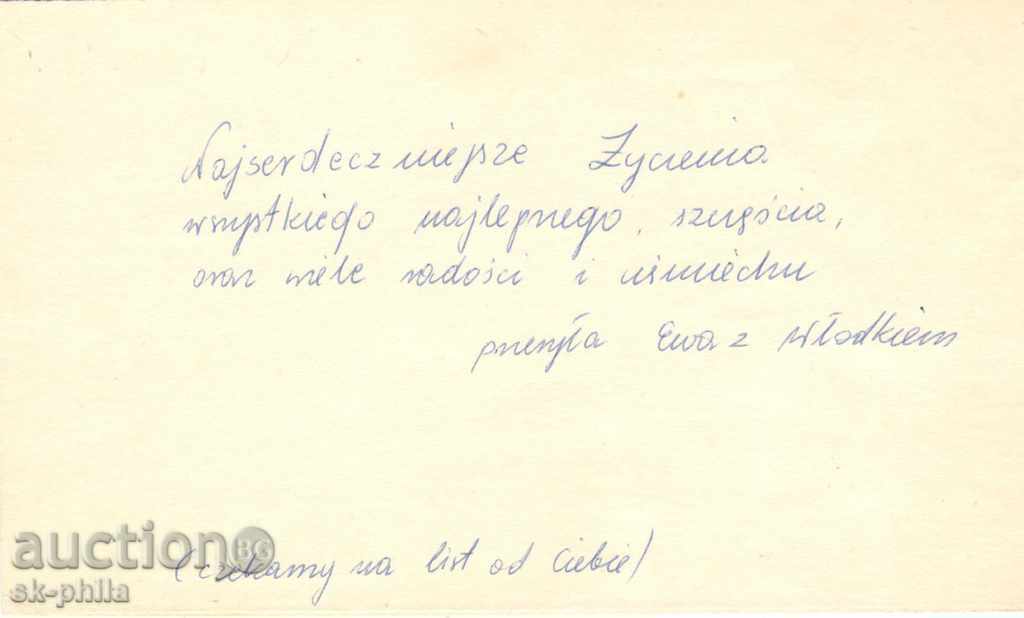 Najserdeczniejsze Życzenia
wszystkiego najlepszego, szczęścia,
oraz wiele radości i uśmiechu
przesyła Ewa z Włodkiem
(czekamy na list od Ciebie)
auction BG
sk-phila